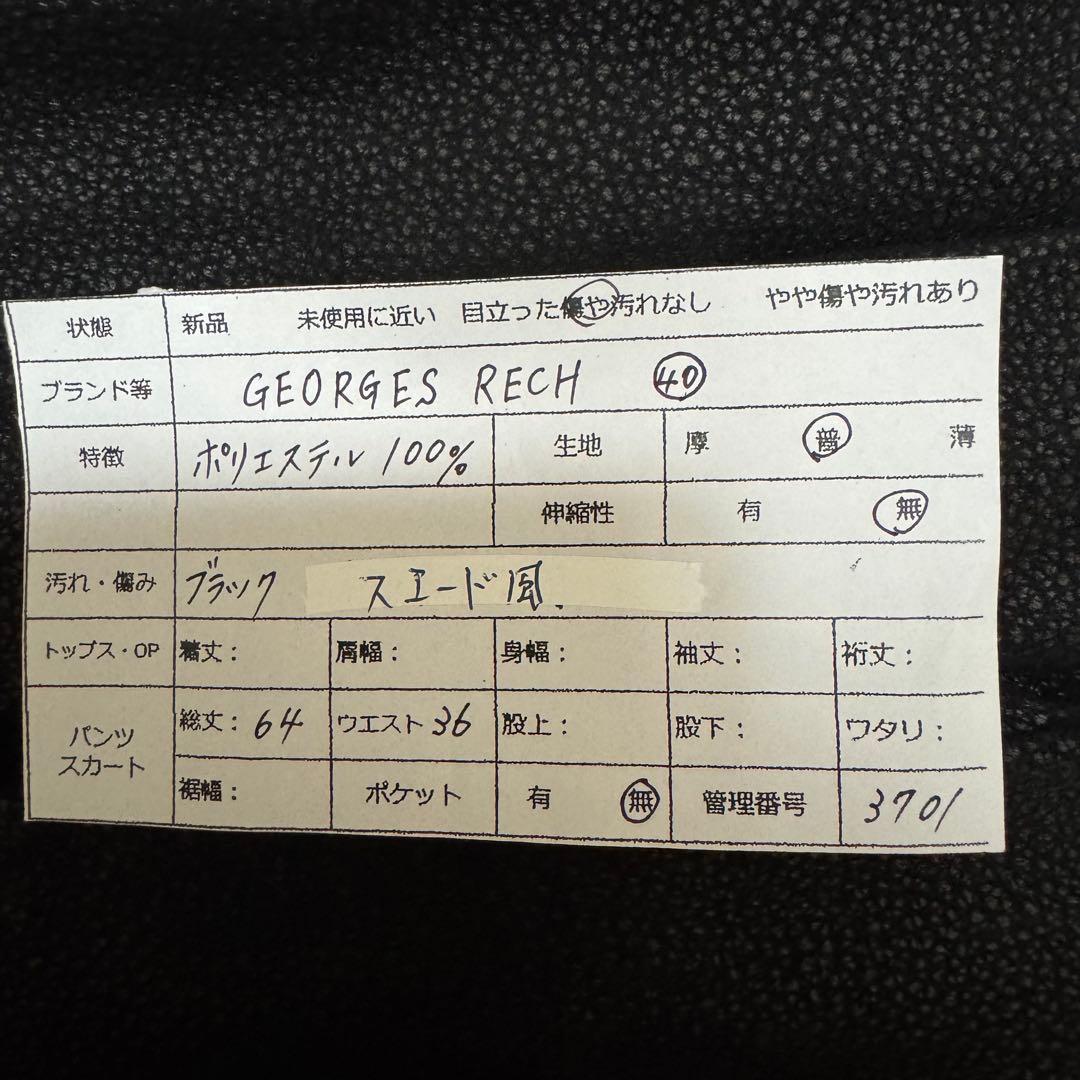 状態 新品 未使用に近い 目立った傷や汚れなし やや傷や汚れあり
ブランド等 GEORGES RECH 40
特徴 ポリエステル 100% 生地 厚 普 薄
伸縮性 有 無
汚れ・傷み ブラック スエード風.
トップス・OP 着丈: 肩幅: 身幅: 袖丈: 裄丈:
パンツ スカート 総丈: 64 ウエスト 36 股上: 股下: ワタリ:
裾幅: ポケット 有 無 管理番号 3701